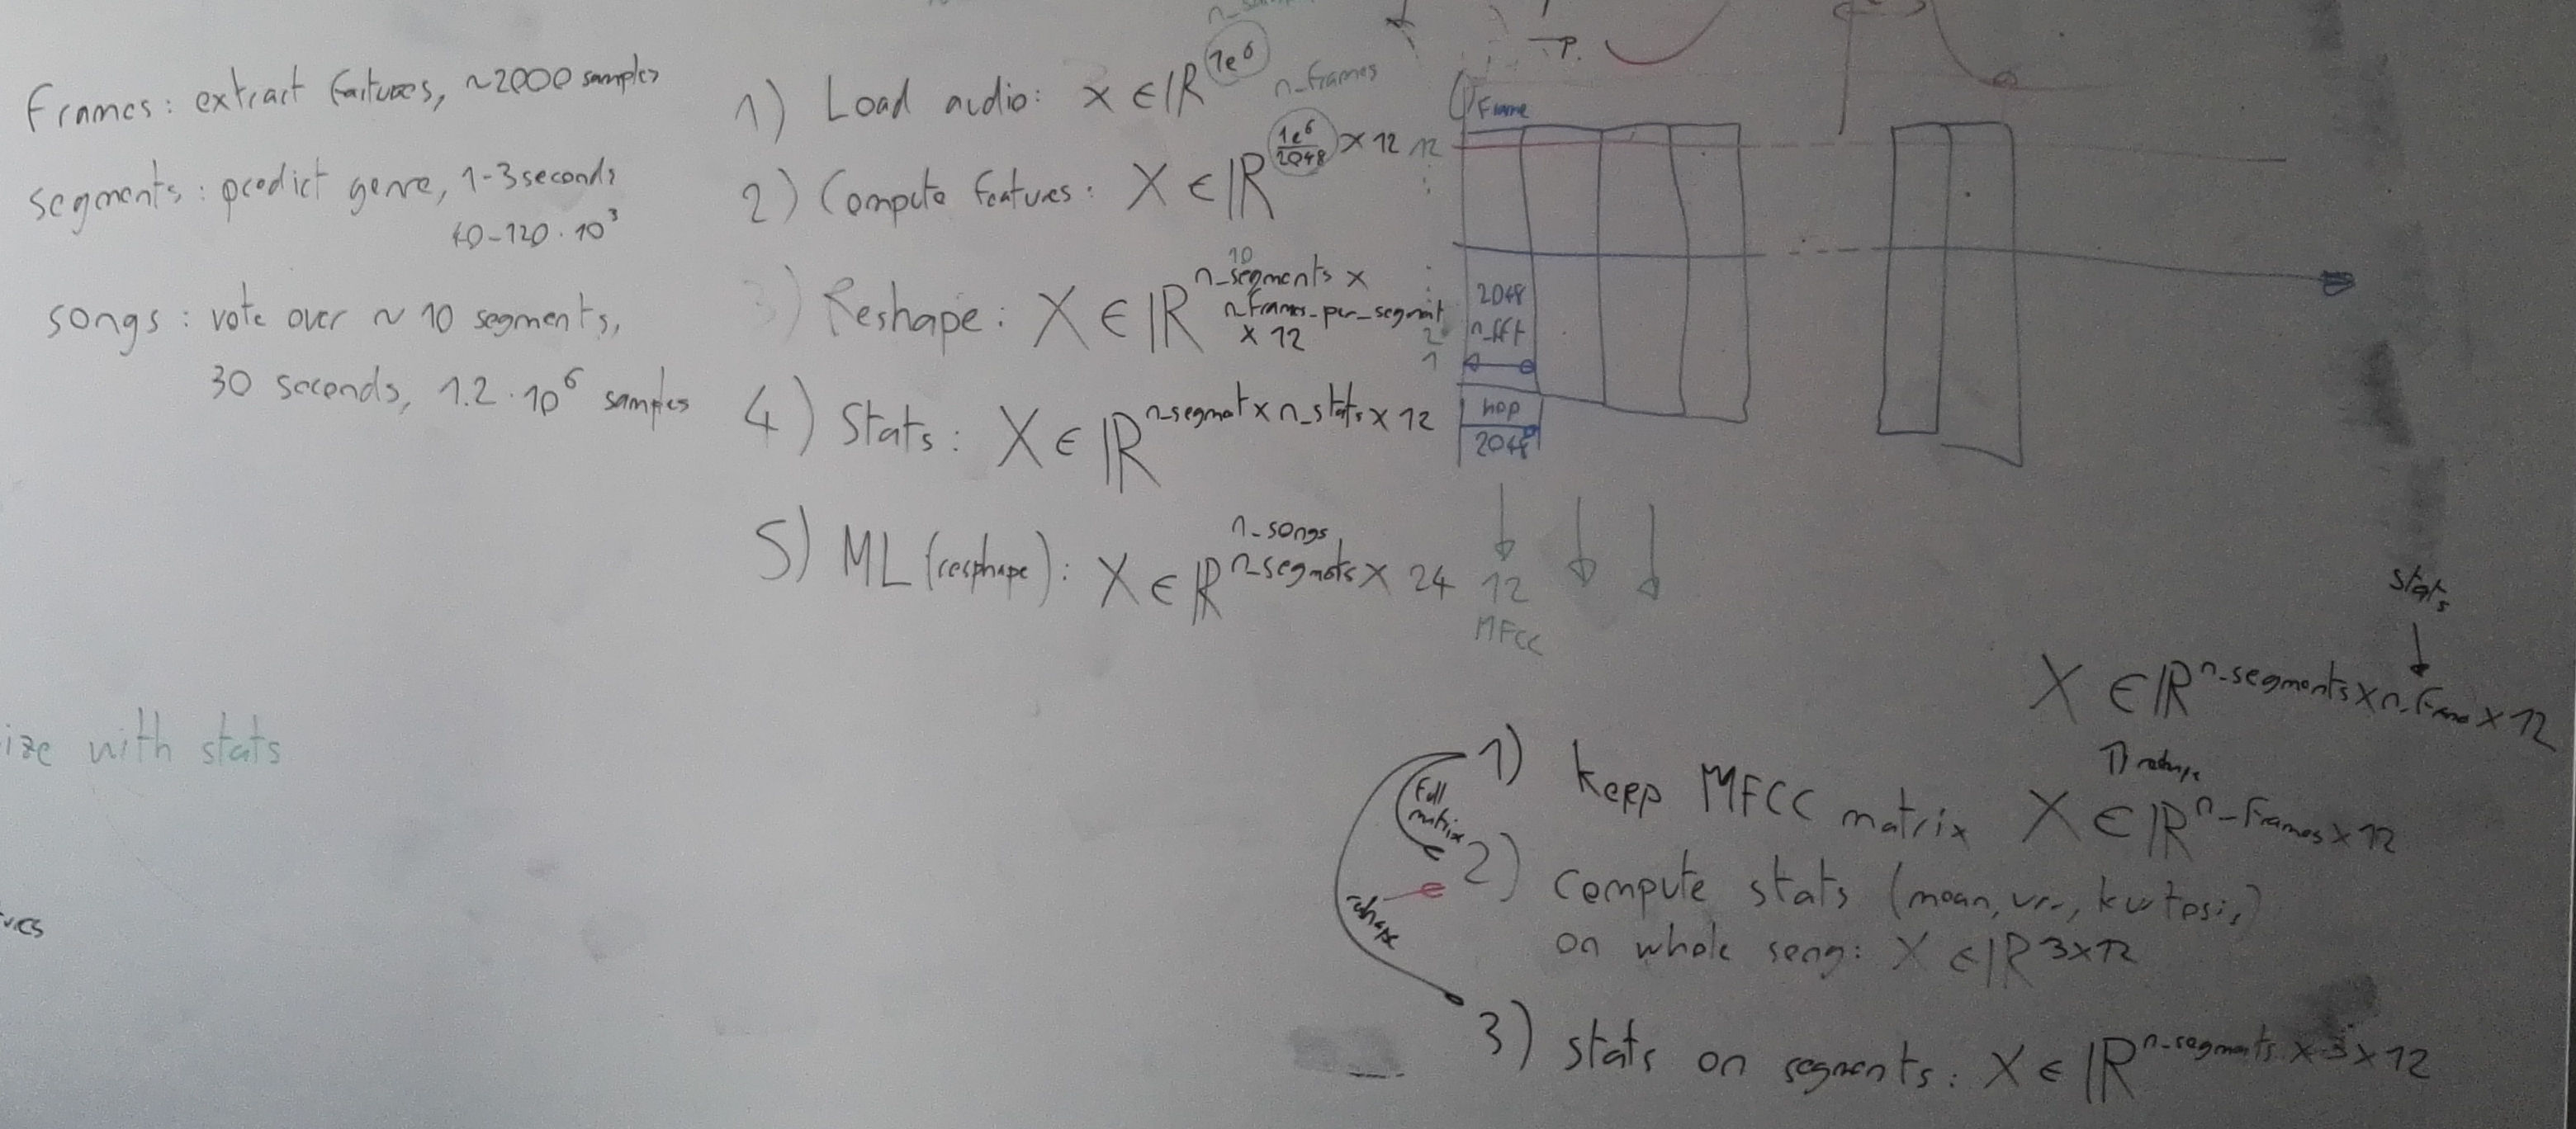 Frames: extract faitures, ~2000 samples
segments: predict genre, 1-3 seconds
40-120 · 10³
songs: vote over ~ 10 segments,
30 seconds, 1.2 · 10⁶ samples
ize with stats
1) Load audio: x ∈ ℝ^1e⁶
n_frames
2) Compute features: X ∈ ℝ^(1e⁶/2048) × 12
3) Reshape: X ∈ ℝ^n_segments ×
10
n_frames_per_segment
× 12
4) Stats: X ∈ ℝ^n_segmat × n_stats × 12
5) ML (resphape): X ∈ ℝ^n_segmots × 24
n_songs
Frame
12
2
1
2048
n_fft
hop
2048
12
MFCC
stats
X ∈ ℝ^n-segments × n_frame × 12
1) keep MFCC matrix X ∈ ℝ^n-frames × 12
full
matrix
2) compute stats (mean, var, kurtosis)
on whole song: X ∈ ℝ^3×12
reshape
3) stats on segments: X ∈ ℝ^n-segments × 3 × 12